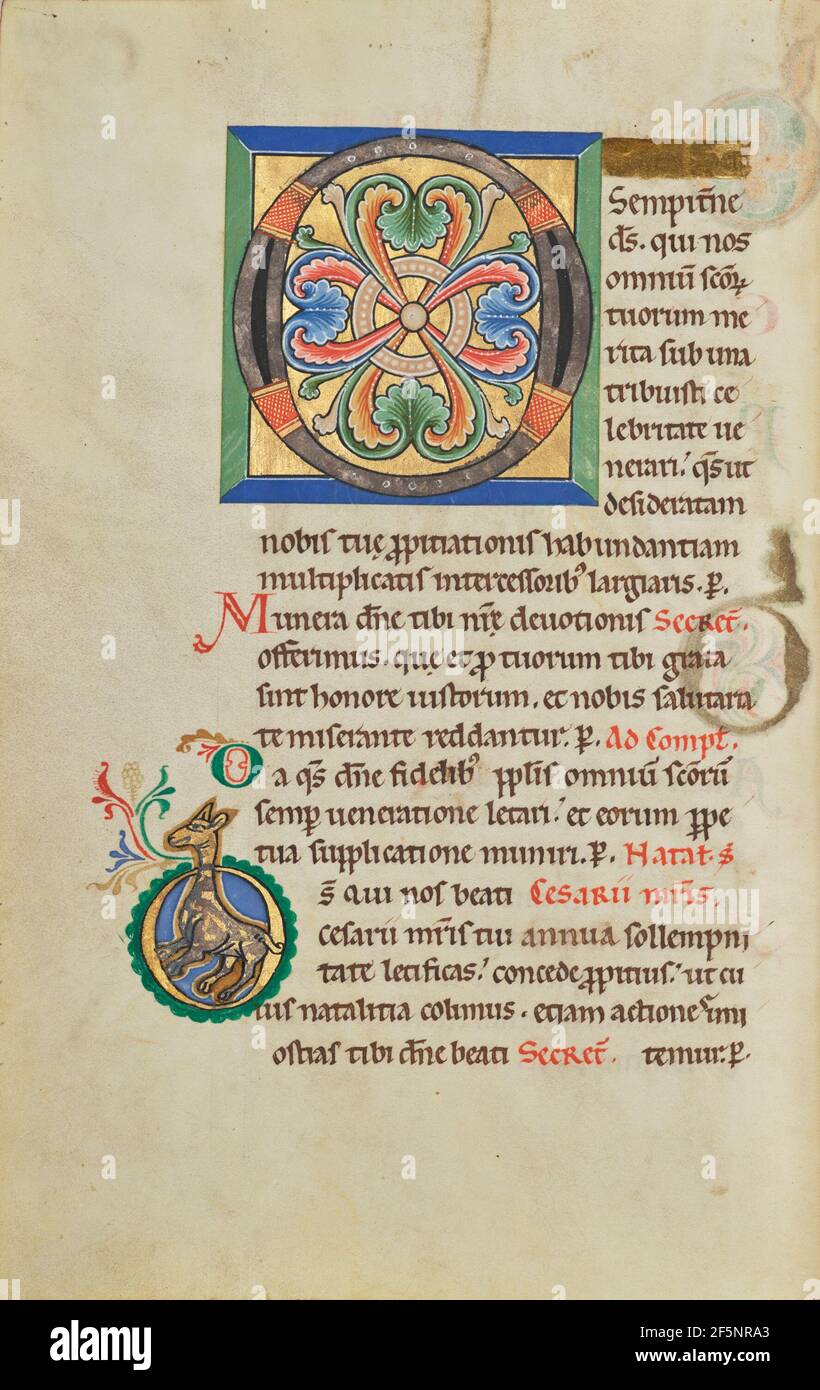 O
Sempitne
ds. qui nos
omniū scōꝝ
tuorum me
rita sub una
tribuisti ce
lebritate ue
nerari. qs ut
desideratam
nobis tuę ꝓpitiationis habundantiam
multiplicatis intercessorib; largiaris. P.
Munera dn̄e tibi nr̄ę deuotionis Secret̄.
offerimus. quę et ꝓ tuorum tibi grata
sint honore iustorum. et nobis salutaria
te miserante reddantur. P. Ad Compl̄.
Da qs dn̄e fidelib; ppl̄is omniū scōrū
semp ueneratione letari. et eorum ꝑpe
tua supplicatione muniri. P. Natal. S
D̄s qui nos beati Cesarii mr̄is.
cesarii mr̄is tui annua sollempni
tate letificas. concede ꝓpitius. ut cu
ius natalitia colimus. etiam actiones imi
ostias tibi dn̄e beati Secret̄. temur. P.
alamy
Image ID: 2F5NRA3
www.alamy.com